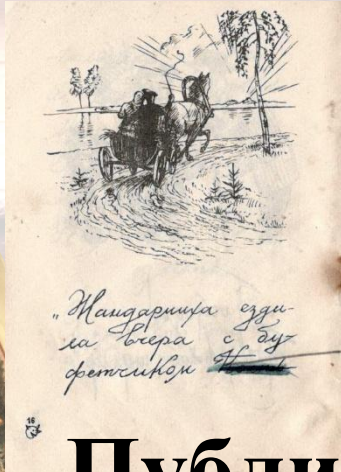 "Жандармиха езди-
ла вчера с бу-
фетчиком
16
Публи